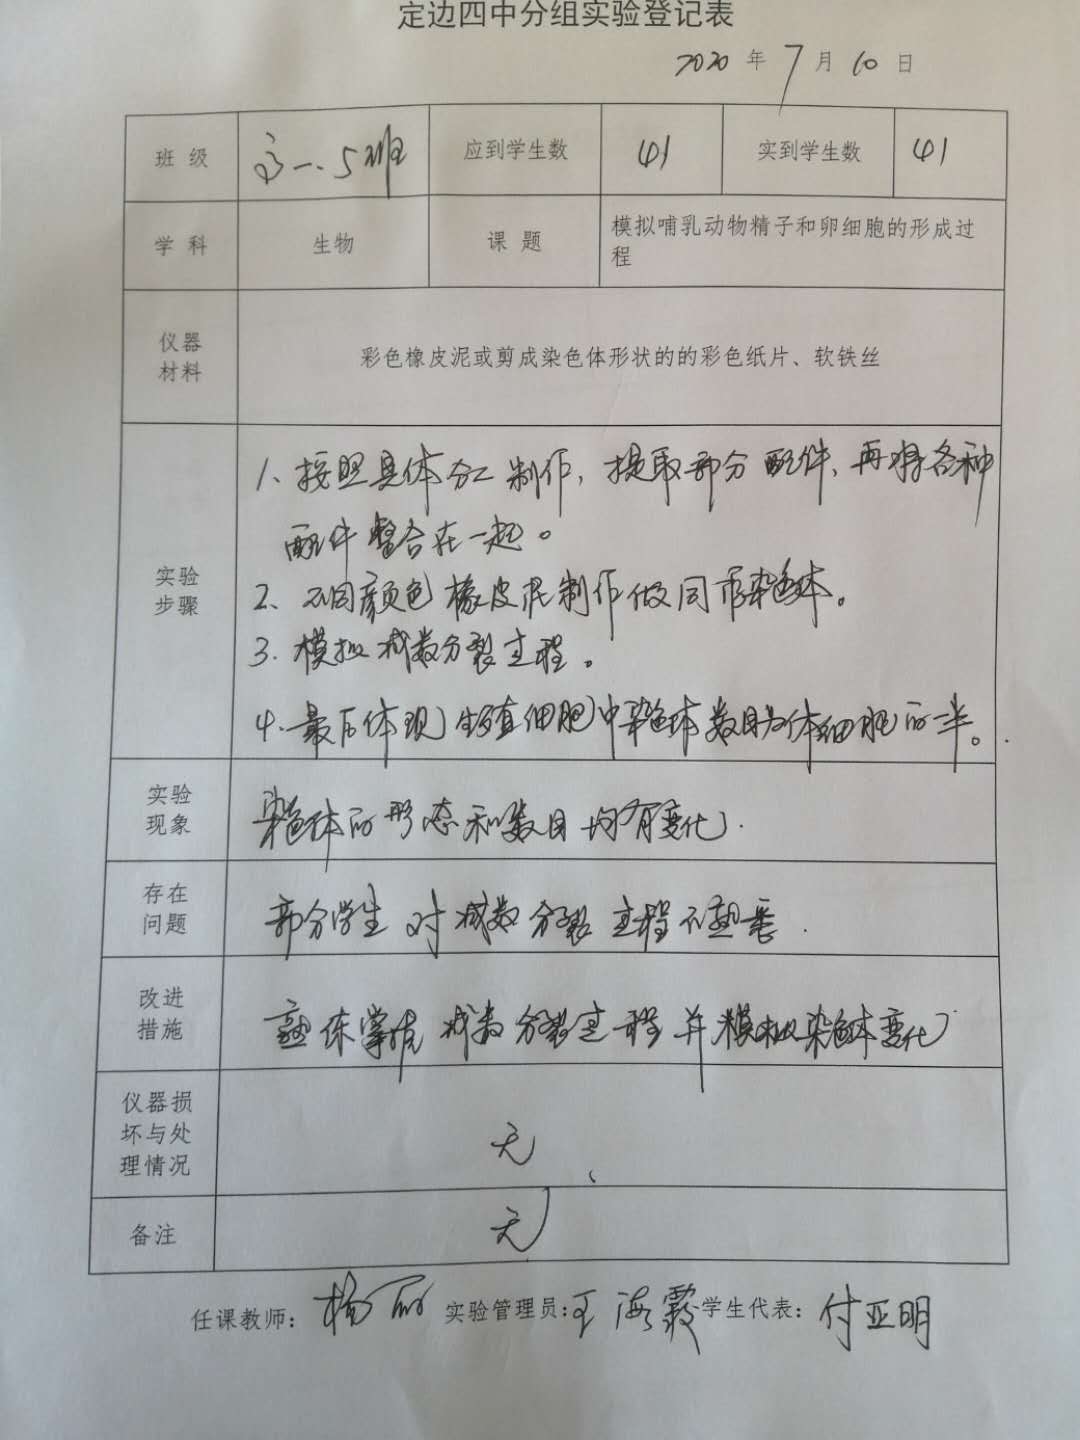 定边四中分组实验登记表
2020 年 7 月 10 日
班 级 高一.5班 应到学生数 41 实到学生数 41
学 科 生物 课 题 模拟哺乳动物精子和卵细胞的形成过
程
仪器
材料
彩色橡皮泥或剪成染色体形状的的彩色纸片、软铁丝
实验
步骤
1、按照具体分工制作,提取部分配件,再将各种
配件整合在一起。
2、不同颜色橡皮泥制作做同源染色体。
3.模拟减数分裂过程。
4.最后体现生殖细胞中染色体数目为体细胞的一半。
实验
现象
染色体的形态和数目均有变化.
存在
问题
部分学生对减数分裂过程不熟悉.
改进
措施
熟练掌握减数分裂过程并模拟染色体变化
仪器损
坏与处
理情况
无
备注
无
任课教师: 杨丽 实验管理员:王海霞 学生代表: 付亚明